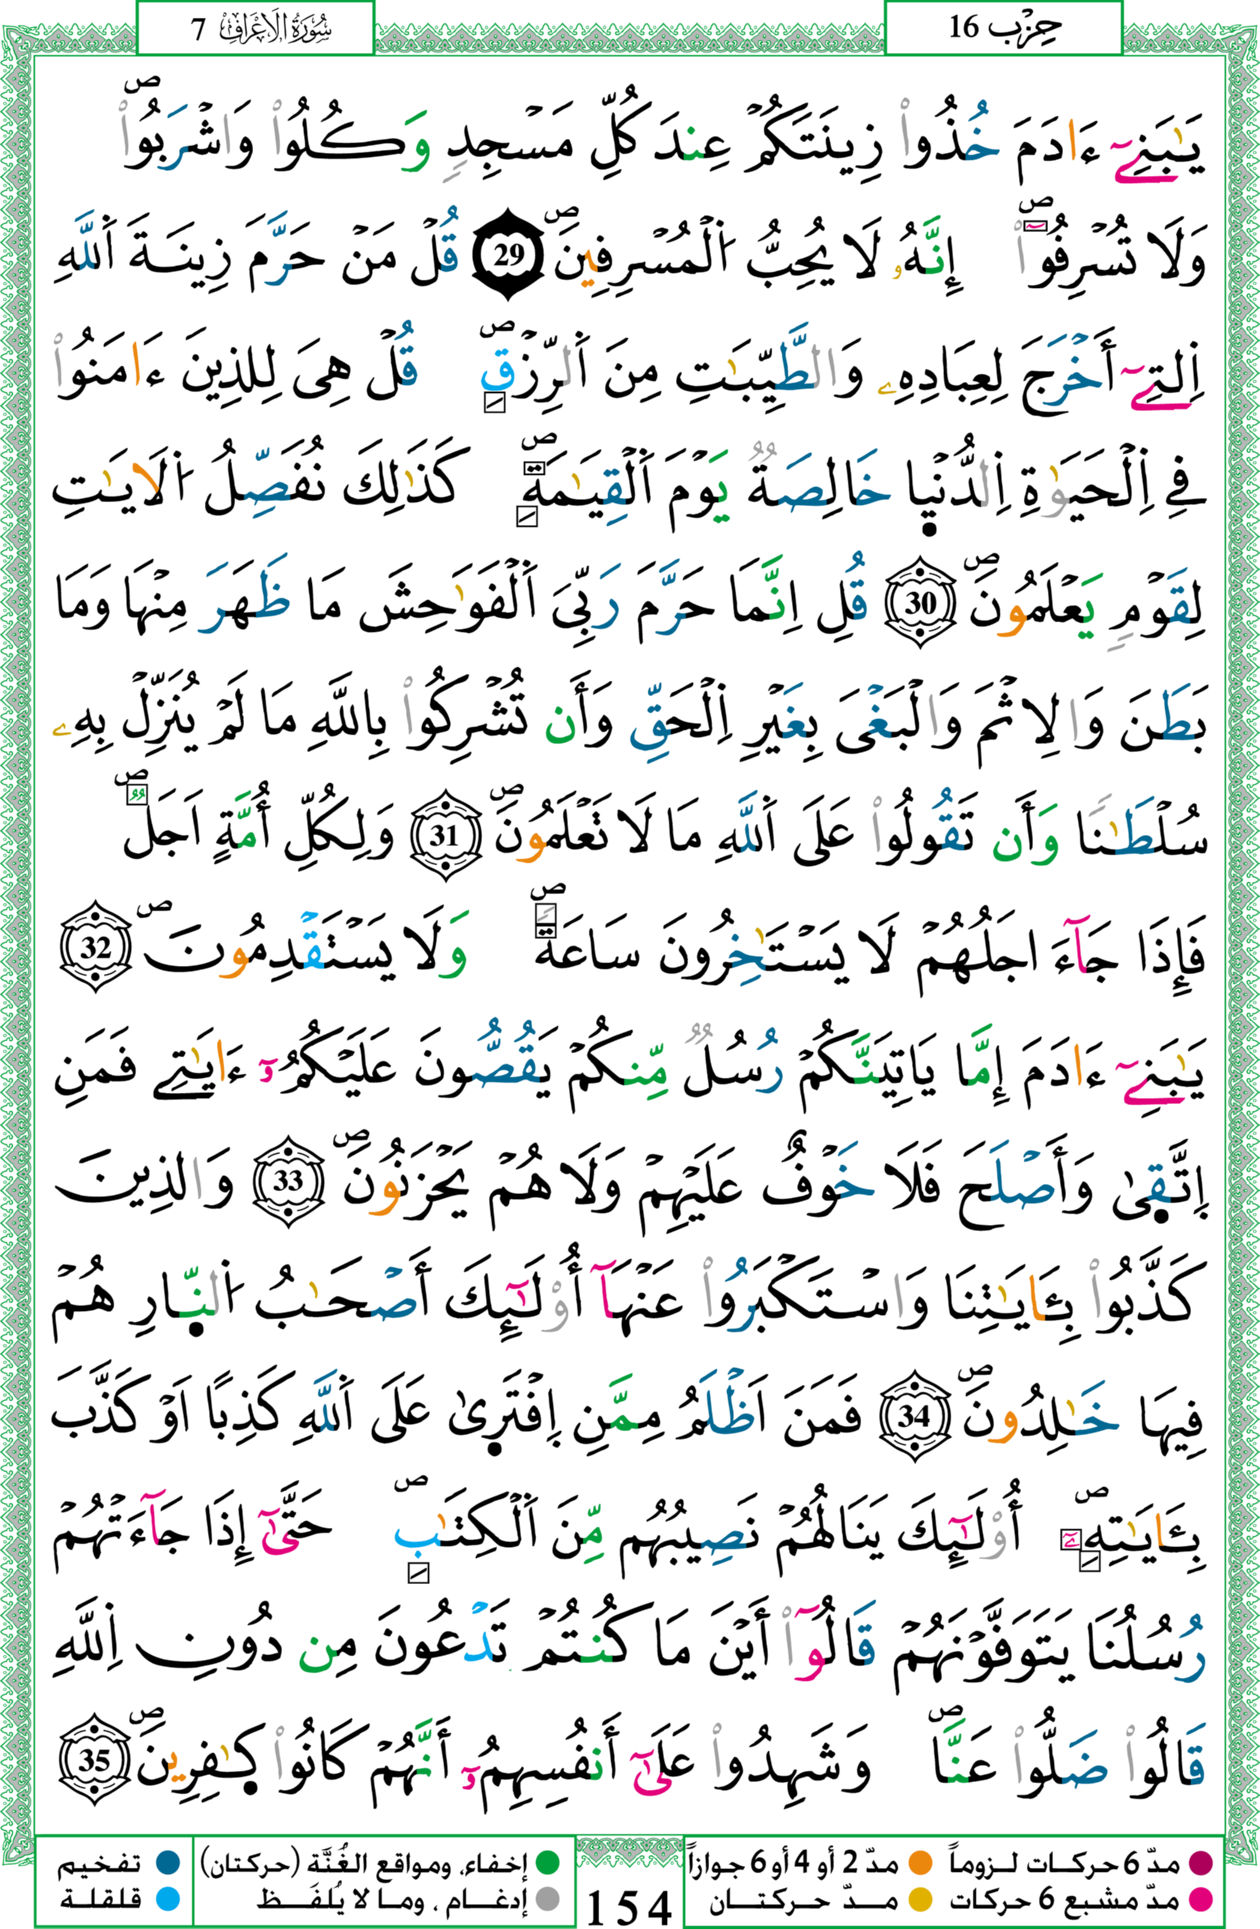 حِزْب 16
سُورَةُ الْأَعْرَافِ 7
يَٰبَنِےٓ ءَادَمَ خُذُواْ زِينَتَكُمْ عِندَ كُلِّ مَسْجِدٖ وَكُلُواْ وَاشْرَبُواْ ۖ
وَلَا تُسْرِفُوٓاْ ۖ إِنَّهُۥ لَا يُحِبُّ اُ۬لْمُسْرِفِينَ ۖ 29 قُلْ مَنْ حَرَّمَ زِينَةَ اَ۬للَّهِ
اِ۬لتِےٓ أَخْرَجَ لِعِبَادِهِۦ وَالطَّيِّبَٰتِ مِنَ اَ۬لرِّزْقِ ۖ قُلْ هِىَ لِلذِينَ ءَامَنُواْ
فِے اِ۬لْحَيَوٰةِ اِ۬لدُّنْي۪ا خَالِصَةٞ يَوْمَ اَ۬لْقِيَٰمَةِ ۖ كَذَٰلِكَ نُفَصِّلُ اُ۬لَايَٰتِ
لِقَوْمٖ يَعْلَمُونَ ۖ 30 قُلِ اِنَّمَا حَرَّمَ رَبِّىَ اَ۬لْفَوَٰحِشَ مَا ظَهَرَ مِنْهَا وَمَا
بَطَنَ وَالِاثْمَ وَالْبَغْىَ بِغَيْرِ اِ۬لْحَقِّ وَأَن تُشْرِكُواْ بِاللَّهِ مَا لَمْ يُنَزِّلْ بِهِۦ
سُلْطَٰنٗا وَأَن تَقُولُواْ عَلَى اَ۬للَّهِ مَا لَا تَعْلَمُونَ ۖ 31 وَلِكُلِّ أُمَّةٍ اَجَلٞ ۖ
فَإِذَا جَآءَ اجَلُهُمْ لَا يَسْتَٰخِرُونَ سَاعَةٗ ۖ وَلَا يَسْتَقْدِمُونَ ۖ 32
يَٰبَنِےٓ ءَادَمَ إِمَّا يَاتِيَنَّكُمْ رُسُلٞ مِّنكُمْ يَقُصُّونَ عَلَيْكُمُۥٓ ءَايَٰتِے فَمَنِ
اِ۪تَّق۪ىٰ وَأَصْلَحَ فَلَا خَوْفٌ عَلَيْهِمْ وَلَا هُمْ يَحْزَنُونَ ۖ 33 وَالذِينَ
كَذَّبُواْ بِـَٔايَٰتِنَا وَاسْتَكْبَرُواْ عَنْهَآ أُوْلَٰٓئِكَ أَصْحَٰبُ اُ۬لنّ۪ارِ هُمْ
فِيهَا خَٰلِدُونَ ۖ 34 فَمَنَ اَظْلَمُ مِمَّنِ اِ۪فْتَر۪ىٰ عَلَى اَ۬للَّهِ كَذِباً اَوْ كَذَّبَ
بِـَٔايَٰتِهِۦٓ ۖ أُوْلَٰٓئِكَ يَنَالُهُمْ نَصِيبُهُم مِّنَ اَ۬لْكِتَٰبِ ۖ حَتَّىٰٓ إِذَا جَآءَتْهُمْ
رُسُلُنَا يَتَوَفَّوْنَهُمْ قَالُوٓاْ أَيْنَ مَا كُنتُمْ تَدْعُونَ مِن دُونِ اِ۬للَّهِ
قَالُواْ ضَلُّواْ عَنَّا ۖ وَشَهِدُواْ عَلَىٰٓ أَنفُسِهِمُۥٓ أَنَّهُمْ كَانُواْ كٰ۪فِرِينَ ۖ 35
مدّ 6 حركات لـزومـاً
مدّ 2 أو 4 أو 6 جوازاً
مدّ مشبع 6 حركات
مـدّ حـركتـان
154
إخفاء، ومواقع الغُنَّة (حركتان)
تفخيم
إدغـام ، ومـا لا يُلفَـظ
قلقلة